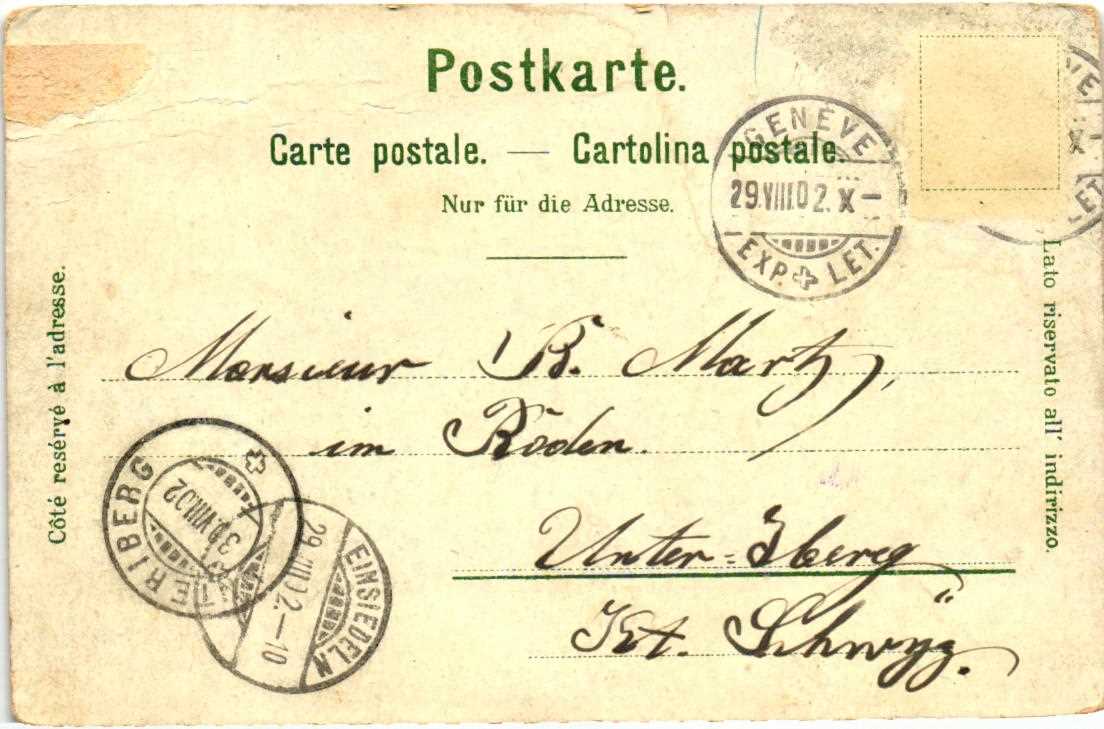 Postkarte.
Carte postale. — Cartolina postale.
Nur für die Adresse.
GENÈVE
29.VIII.02. X—
EXP. LET.
Côté resérvé à l'adresse.
Lato riservato all' indirizzo.
Monsieur B. Marty,
im Röden.
Unter=Iberg
Kt. Schwyz.
TERIBERG
30.VIII.02
EINSIEDELN
29.VIII.02.—10
VE
X—
LET